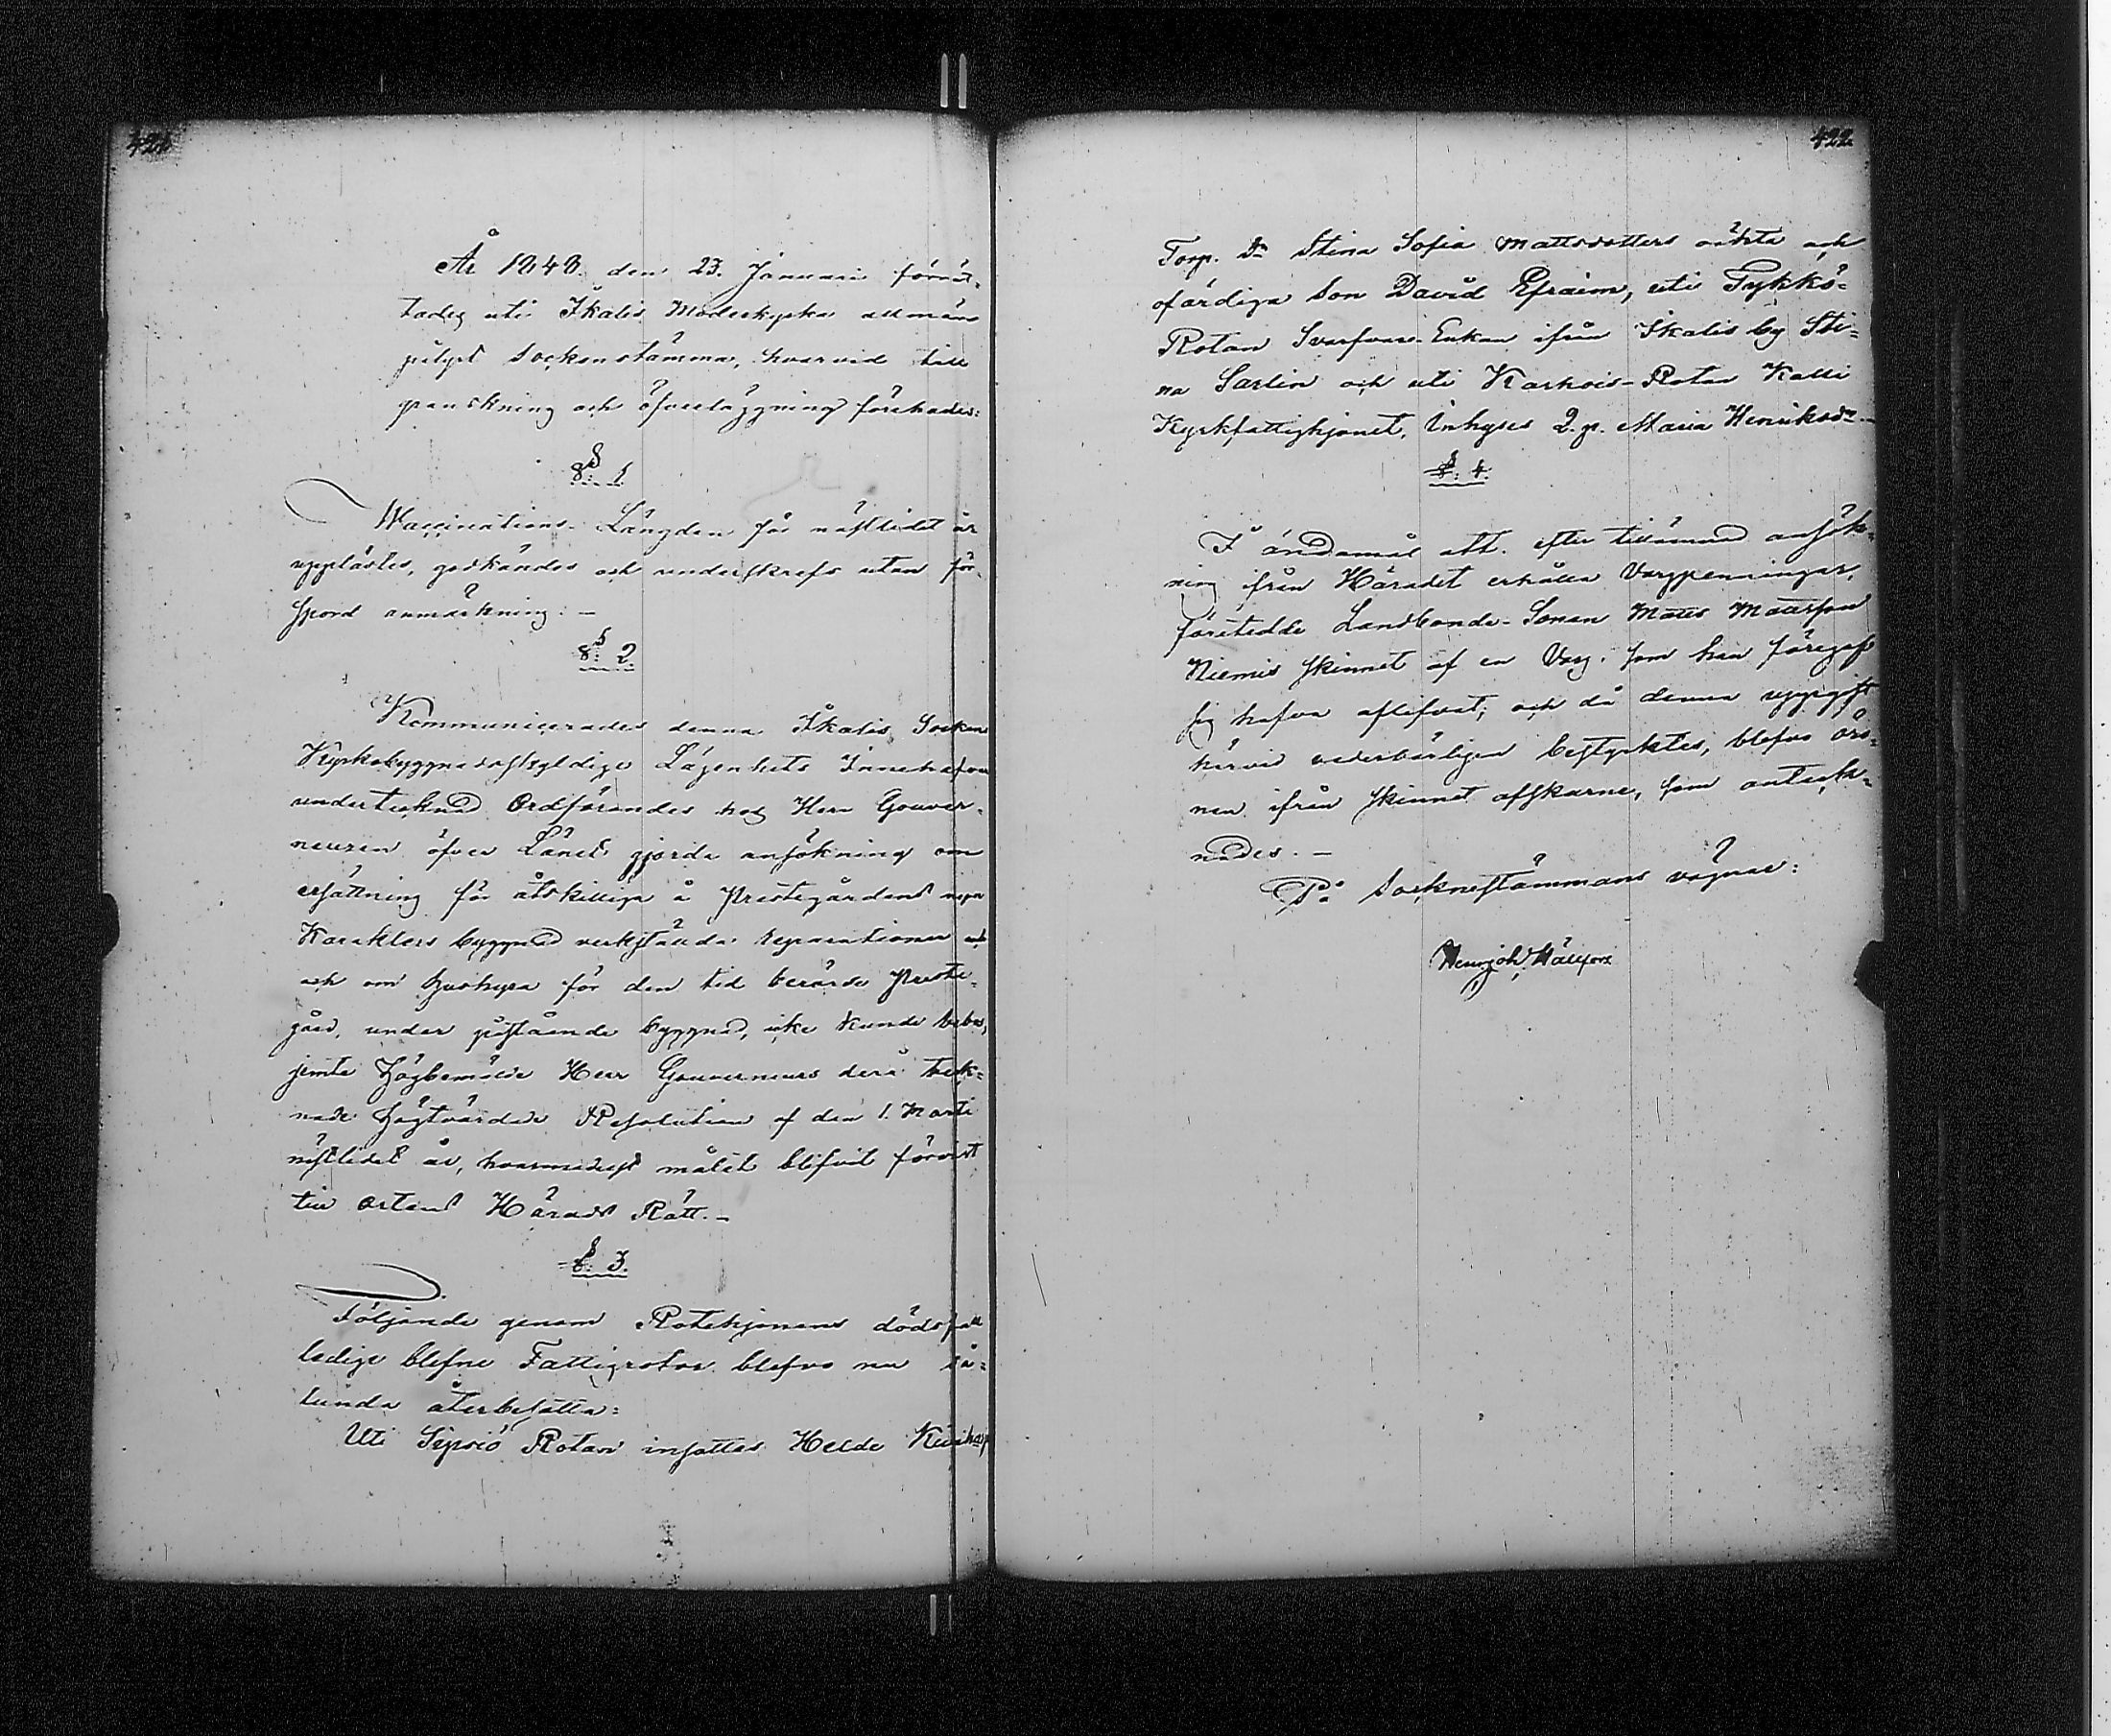 421
År 1848. den 23. Januari förrät-
tades uti Ikalis Moderkyrka allmän
pålyst Sockenstämma, hvarvid till
granskning och öfverläggning förehades:
§. 1.
Vaccinations-Längden för nästlidet år
upplästes, godkändes och underskrefs utan för-
spord anmärkning. –
§. 2.
Kommunicerades denna Ikalis Socken
Kyrkobyggnadsskyldige Lägenhets Innehafvare
undertecknad Ordförandes hos Herr Gouver-
neuren öfver Länet gjorda ansökning om
ersättning för åtskilliga å Prestegårdens
Karakters byggnad verkställda reparationer
och om hushyra för den tid berörde Preste-
gård, under påstående byggnad, icke kunde bebos,
jemte Högbemälde Herr Gouverneurs derå teck-
nade Högtvördade Resolution af den 1. Martii
nästlidet år, hvarmedelst målet blifvit förvist
till ortens Härads Rätt. –
§. 3.
Följande genom Rotehjonens dödsfall
ledige blefne Fattigrotar blefvo nu så-
lunda återbesatta:
Uti Sipsiö Rotan insattes Heldo
422
Torp. Dr Stina Sofia Mattsdotters oäkta och
ofärdiga Son David Efraim, uti Tykkö-
Rotan Svarfvare-Enkan ifrån Ikalis by Sti-
na Sarlin och uti Karhois-Rotan Kalli
Kyrkfattighjonet, Inhyses Q. p. Maria Henriksdr. –
§. 4.
I ändamål att efter tillämnad ansök-
ning ifrån Häradet erhålla Vargpenningar,
företedde Landbonde-Sonen Matts Mattsson
Niemis skinnet af en Varg, som han föregaf
sig hafva aflifvat; och då denna uppgift
härvid vederbörligen bestyrktes, blefvo öro-
nen ifrån skinnet afskurne, som anteck-
nades. –
På Socknestämmans vägnar:
Henr. Joh. Hällfors